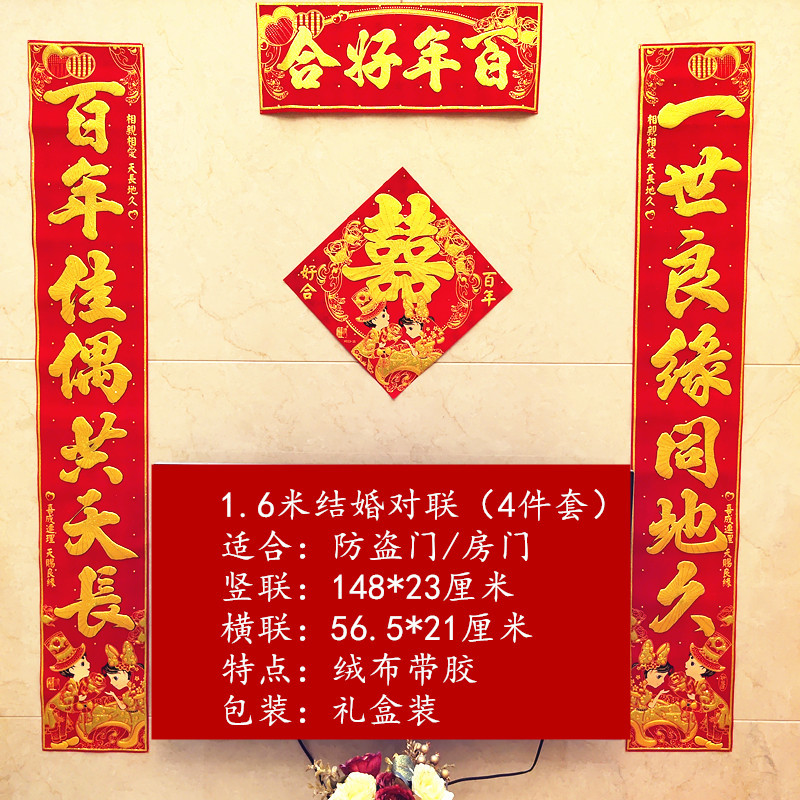 百年好合
一世良缘同地久
相親相愛 天長地久
喜成連理 天賜良緣
百年佳偶共天長
相親相愛 天長地久
喜成連理 天賜良緣
囍
百年
好合
1.6米结婚对联（4件套）
适合：防盗门/房门
竖联：148*23厘米
横联：56.5*21厘米
特点：绒布带胶
包装：礼盒装